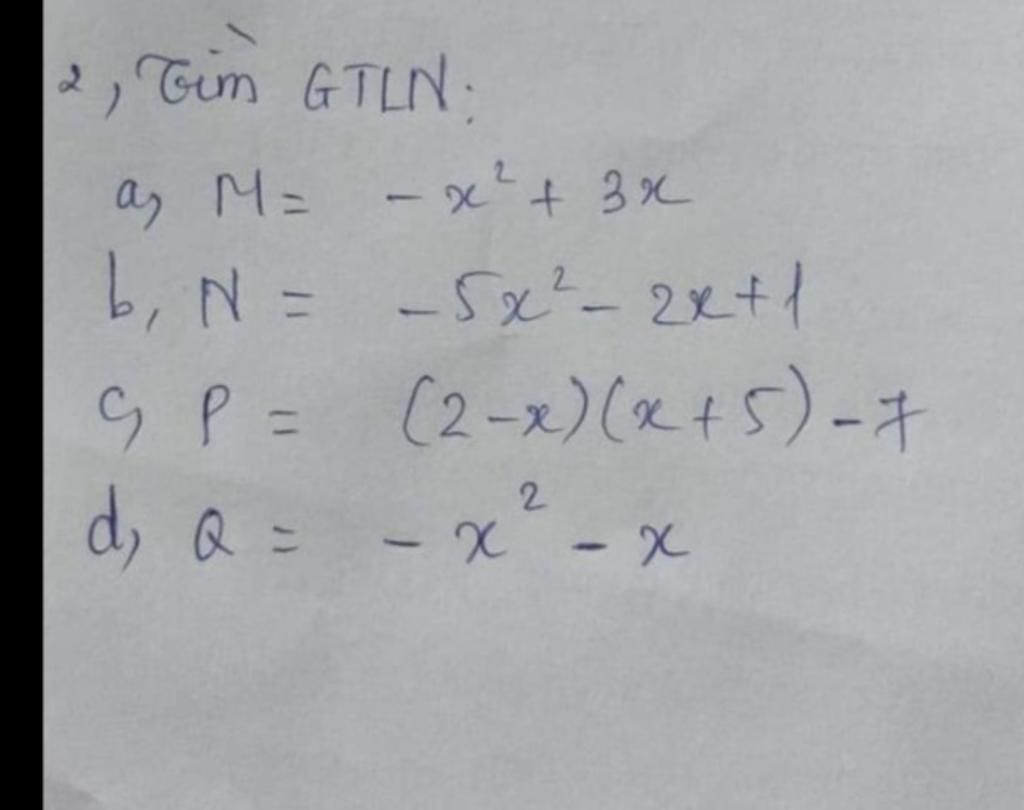 2, Tìm GTLN:
a, M = - x² + 3x
b, N = - 5x² - 2x + 1
c, P = (2-x)(x+5) - 7
d, Q = - x² - x